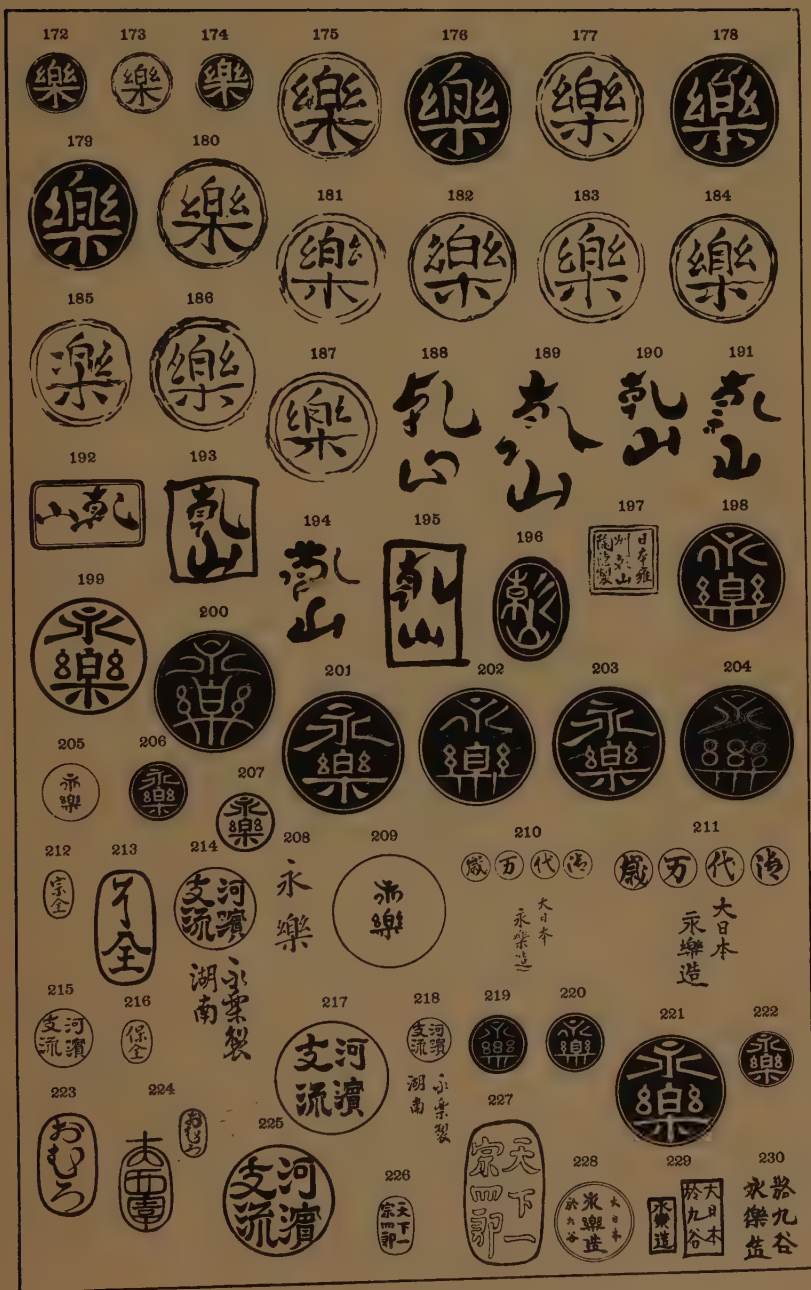 172
樂
173
樂
174
樂
175
樂
176
樂
177
樂
178
樂
179
樂
180
樂
181
樂
182
樂
183
樂
184
樂
185
樂
186
樂
187
樂
188
乾山
189
乾山
190
乾山
191
乾山
192
乾山
193
乾山
194
乾山
195
乾山
196
乾山
197
日本雍
州乾山
陶隠製
198
永樂
199
永樂
200
永樂
201
永樂
202
永樂
203
永樂
204
永樂
205
永樂
206
永樂
207
永樂
208
永樂
209
永樂
210
代万歳
大日本
永樂造
211
代万歳
大日本
永樂造
212
宗全
213
了全
214
河濱
支流
永樂製
湖南
215
河濱
支流
216
保全
217
河濱
支流
218
河濱
支流
永樂製
湖南
219
永樂
220
永樂
221
永樂
222
永樂
223
おむろ
224
おむろ
225
河濱
支流
226
天下一
宗四郎
227
天下一
宗四郎
228
大日本
永樂造
於九谷
229
大日本
於九谷
永樂造
230
於九谷
永樂造